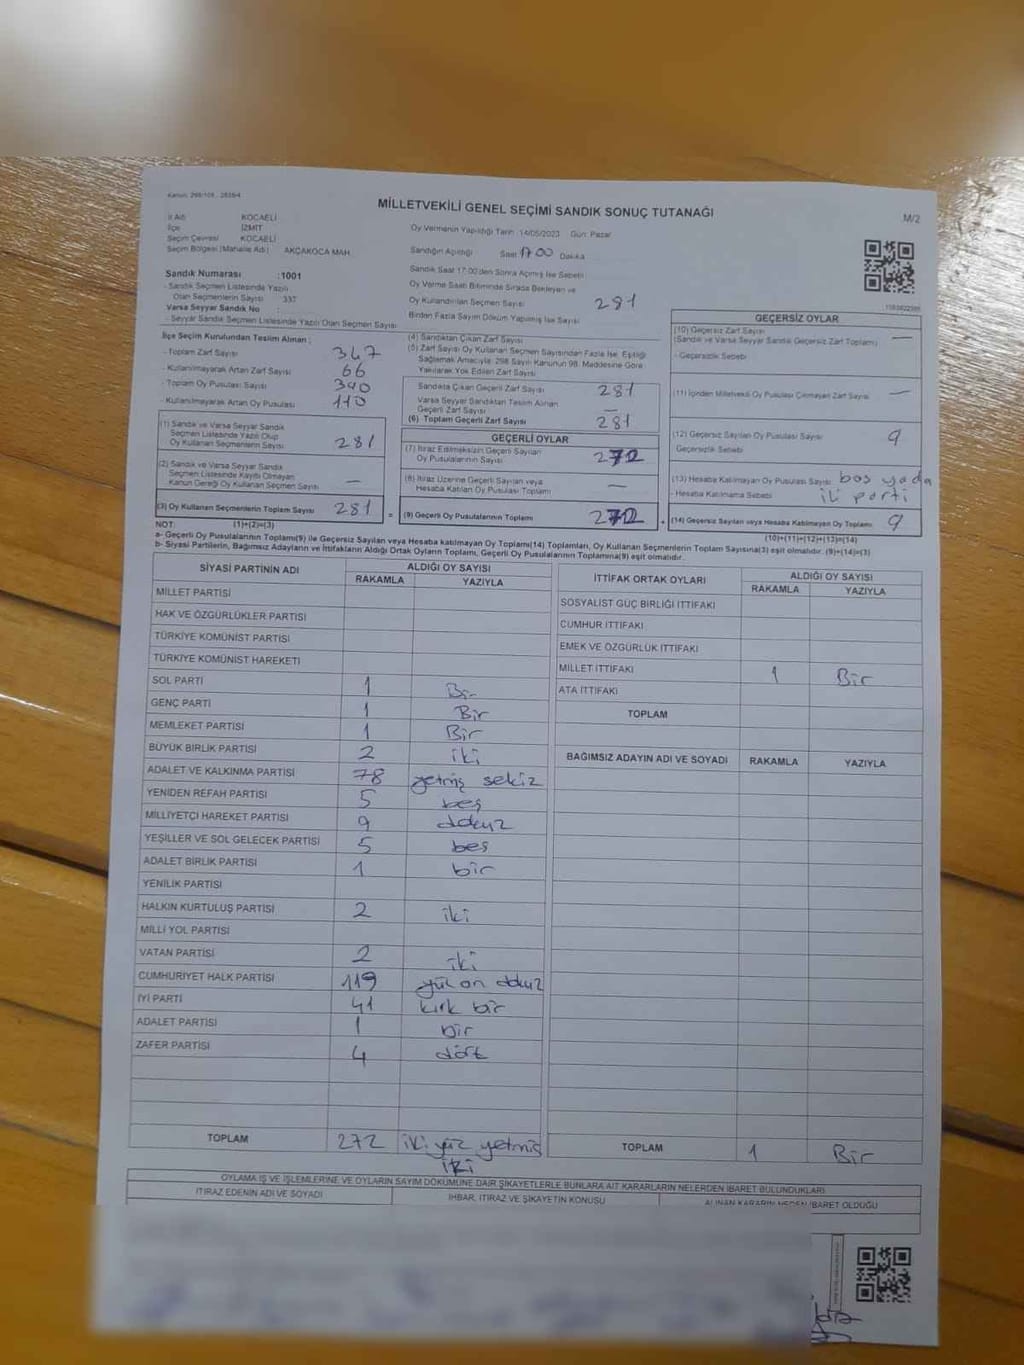 Kanun: 298/105 , 2839/4
MİLLETVEKİLİ GENEL SEÇİMİ SANDIK SONUÇ TUTANAĞI
M/2
İl Adı KOCAELİ
İlçe İZMİT
Seçim Çevresi KOCAELİ
Seçim Bölgesi (Mahalle Adı) AKÇAKOCA MAH.
Sandık Numarası :1001
- Sandık Seçmen Listesinde Yazılı
Olan Seçmenlerin Sayısı : 337
Varsa Seyyar Sandık No :
- Seyyar Sandık Seçmen Listesinde Yazılı Olan Seçmen Sayısı
Oy Vermenin Yapıldığı Tarih :14/05/2023 Gün: Pazar
Sandığın Açıldığı Saat 17 00 Dakika
Sandık Saat 17:00'den Sonra Açılmış İse Sebebi
Oy Verme Saati Bitiminde Sırada Bekleyen ve
Oy Kullandırılan Seçmen Sayısı 281
Birden Fazla Sayım Döküm Yapılmış İse Sayısı
İlçe Seçim Kurulundan Teslim Alınan :
- Toplam Zarf Sayısı 347
- Kullanılmayarak Artan Zarf Sayısı 66
- Toplam Oy Pusulası Sayısı 390
- Kullanılmayarak Artan Oy Pusulası 110
(1) Sandık ve Varsa Seyyar Sandık
Seçmen Listesinde Yazılı Olup
Oy Kullanan Seçmenlerin Sayısı 281
(2) Sandık ve Varsa Seyyar Sandık
Seçmen Listesinde Kaydı Olmayan
Kanun Gereği Oy Kullanan Seçmen Sayısı —
(3) Oy Kullanan Seçmenlerin Toplam Sayısı 281
(4) Sandıktan Çıkan Zarf Sayısı
(5) Zarf Sayısı Oy Kullanan Seçmen Sayısından Fazla İse, Eşitliği
Sağlamak Amacıyla; 298 Sayılı Kanunun 98. Maddesine Göre
Yakılarak Yok Edilen Zarf Sayısı
Sandıkta Çıkan Geçerli Zarf Sayısı 281
Varsa Seyyar Sandıktan Teslim Alınan
Geçerli Zarf Sayısı —
(6) Toplam Geçerli Zarf Sayısı 281
GEÇERLİ OYLAR
(7) İtiraz Edilmeksizin Geçerli Sayılan
Oy Pusulalarının Sayısı 272
(8) İtiraz Üzerine Geçerli Sayılan veya
Hesaba Katılan Oy Pusulası Toplamı —
= (9) Geçerli Oy Pusulalarının Toplamı 272
GEÇERSİZ OYLAR
(10) Geçersiz Zarf Sayısı
(Sandık ve Varsa Seyyar Sandık Geçersiz Zarf Toplamı) —
- Geçersizlik Sebebi
(11) İçinden Milletvekili Oy Pusulası Çıkmayan Zarf Sayısı —
(12) Geçersiz Sayılan Oy Pusulası Sayısı 9
Geçersizlik Sebebi
(13) Hesaba Katılmayan Oy Pusulası Sayısı boş yada
- Hesaba Katılmama Sebebi iki parti
(14) Geçersiz Sayılan veya Hesaba Katılmayan Oy Toplamı 9
NOT: (1)+(2)=(3) (10)+(11)+(12)+(13)=(14)
a- Geçerli Oy Pusulalarının Toplamı(9) ile Geçersiz Sayılan veya Hesaba Katılmayan Oy Toplamı(14) Toplamları, Oy Kullanan Seçmenlerin Toplam Sayısına(3) eşit olmalıdır. (9)+(14)=(3)
b- Siyasi Partilerin, Bağımsız Adayların ve İttifakların Aldığı Ortak Oyların Toplamı, Geçerli Oy Pusulalarının Toplamına(9) eşit olmalıdır.
SİYASİ PARTİNİN ADI ALDIĞI OY SAYISI
RAKAMLA YAZIYLA
MİLLET PARTİSİ
HAK VE ÖZGÜRLÜKLER PARTİSİ
TÜRKİYE KOMÜNİST PARTİSİ
TÜRKİYE KOMÜNİST HAREKETİ
SOL PARTİ 1 Bir
GENÇ PARTİ 1 Bir
MEMLEKET PARTİSİ 1 Bir
BÜYÜK BİRLİK PARTİSİ 2 iki
ADALET VE KALKINMA PARTİSİ 78 yetmiş sekiz
YENİDEN REFAH PARTİSİ 5 beş
MİLLİYETÇİ HAREKET PARTİSİ 9 dokuz
YEŞİLLER VE SOL GELECEK PARTİSİ 5 beş
ADALET BİRLİK PARTİSİ 1 bir
YENİLİK PARTİSİ
HALKIN KURTULUŞ PARTİSİ 2 iki
MİLLİ YOL PARTİSİ
VATAN PARTİSİ 2 iki
CUMHURİYET HALK PARTİSİ 119 yüz on dokuz
İYİ PARTİ 41 kırk bir
ADALET PARTİSİ 1 bir
ZAFER PARTİSİ 4 dört
TOPLAM 272 iki yüz yetmiş
iki
İTTİFAK ORTAK OYLARI ALDIĞI OY SAYISI
RAKAMLA YAZIYLA
SOSYALİST GÜÇ BİRLİĞİ İTTİFAKI
CUMHUR İTTİFAKI
EMEK VE ÖZGÜRLÜK İTTİFAKI
MİLLET İTTİFAKI 1 Bir
ATA İTTİFAKI
TOPLAM
BAĞIMSIZ ADAYIN ADI VE SOYADI RAKAMLA YAZIYLA
TOPLAM 1 Bir
OYLAMA İŞ VE İŞLEMLERİNE VE OYLARIN SAYIM DÖKÜMÜNE DAİR ŞİKAYETLERLE BUNLARA AİT KARARLARIN NELERDEN İBARET BULUNDUKLARI
İTİRAZ EDENİN ADI VE SOYADI İHBAR, İTİRAZ VE ŞİKAYETİN KONUSU ALINAN KARARIN NEDEN İBARET OLDUĞU